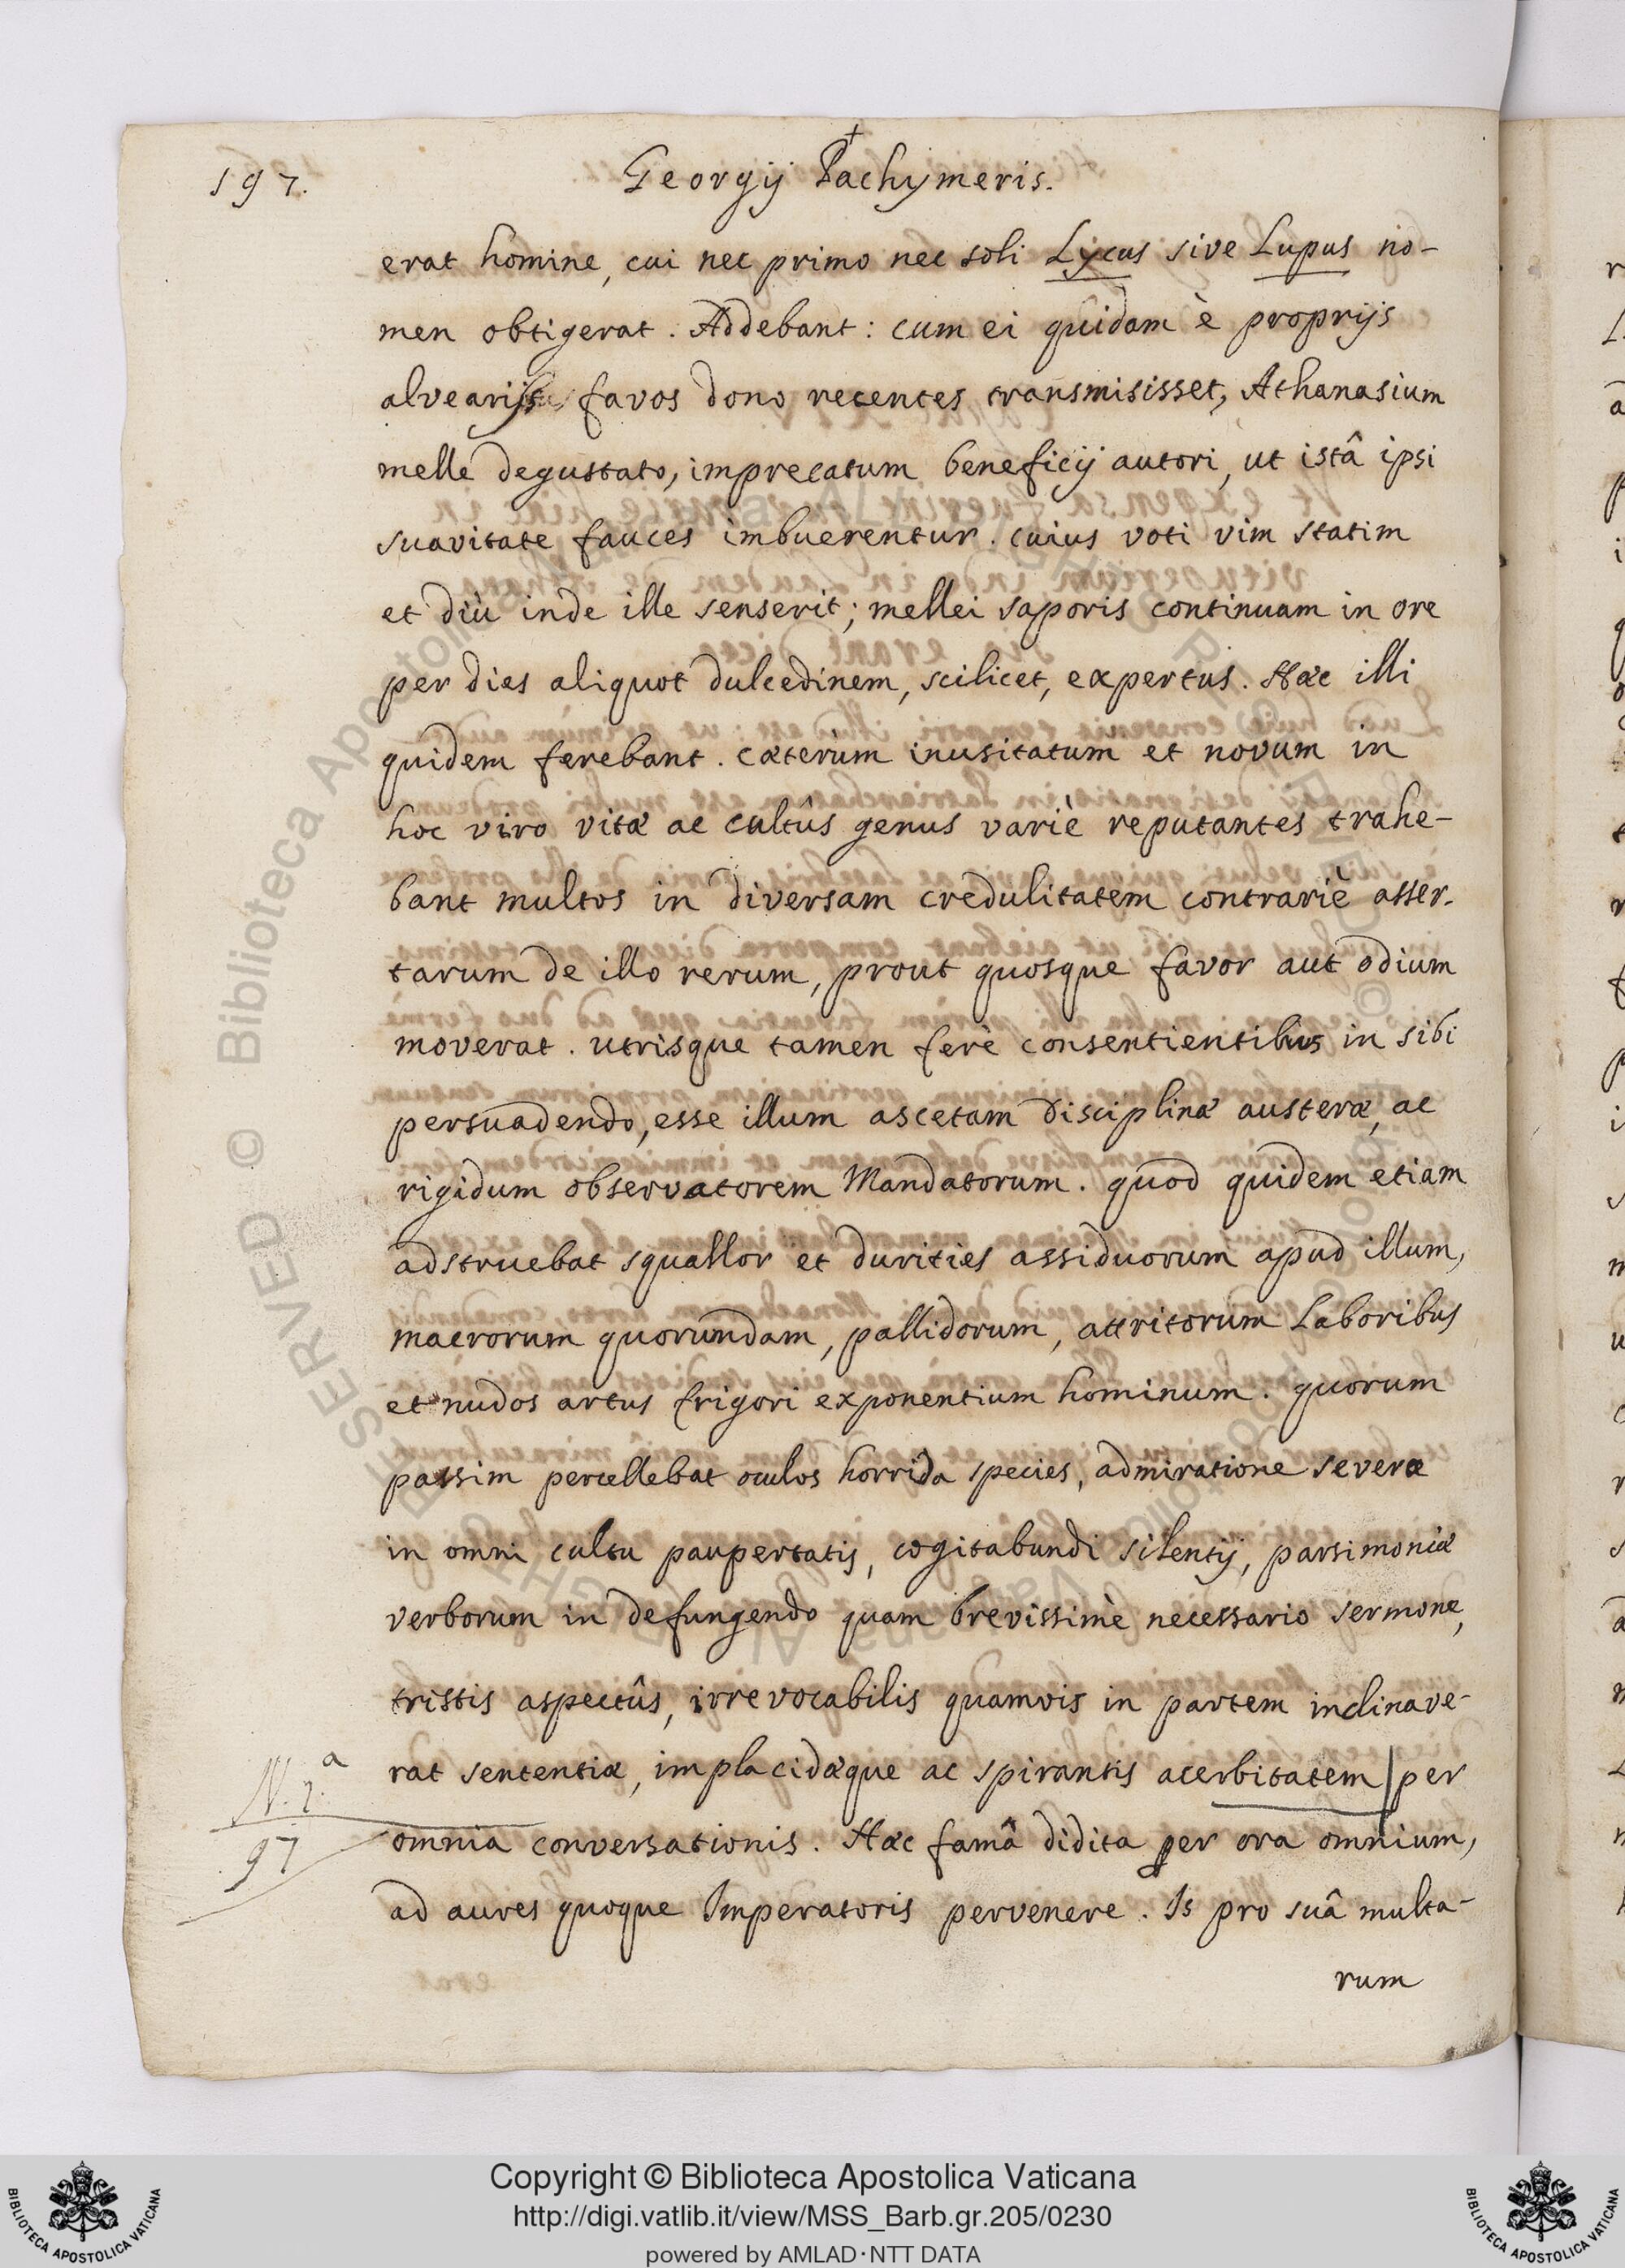 197.
Georgij Pachymeris.
erat homine, cui nec primo nec soli Lycus sive Lupus no-
men obtigerat. Addebant: cum ei quidam è proprijs
alvearijs favos dono recentes transmisisset, Athanasium
melle degustato, imprecatum beneficij autori, ut istâ ipsi
suavitate fauces imbuerentur. cuius voti vim statim
et diù inde ille senserit; mellei saporis continuam in ore
per dies aliquot dulcedinem, scilicet, expertus. Hæc illi
quidem ferebant. cæterùm inusitatum et novum in
hoc viro vitæ ac cultûs genus variè reputantes trahe-
bant multos in diversam credulitatem contrariè asser-
tarum de illo rerum, prout quosque favor aut odium
moverat. utrisque tamen ferè consentientibus in sibi
persuadendo, esse illum ascetam disciplinæ austeræ, ac
rigidum observatorem Mandatorum. quod quidem etiam
adstruebat squallor et durities assiduorum apud illum,
macrorum quorundam, pallidorum, attritorum laboribus
et nudos artus frigori exponentium hominum. quorum
passim percellebat oculos horrida species, admiratione severæ
in omni cultu paupertatis, cogitabundi silentij, parsimoniæ
verborum in defungendo quam brevissimè necessario sermone,
tristis aspectûs, irrevocabilis quamvis in partem inclinave-
rat sententiæ, implacidæque ac spirantis acerbitatem | per
N. 2.a
97
omnia conversationis. Hæc famâ didita per ora omnium,
ad aures quoque Imperatoris pervenere. Is pro suâ multa-
rum
Copyright © Biblioteca Apostolica Vaticana
http://digi.vatlib.it/view/MSS_Barb.gr.205/0230
powered by AMLAD·NTT DATA
BIBLIOTECA APOSTOLICA VATICANA
BIBLIOTECA APOSTOLICA VATICANA